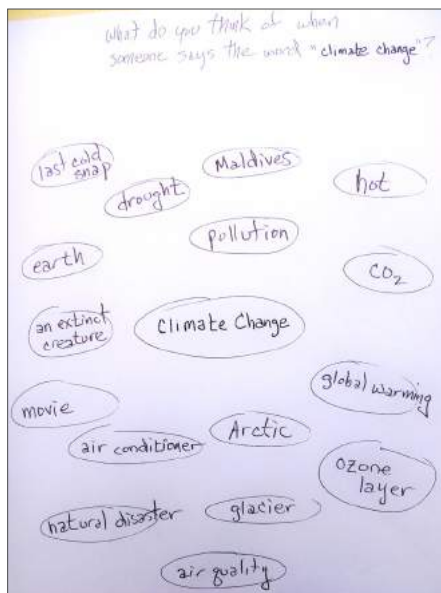 what do you think of when
someone says the word "climate change"?
last cold
snap
Maldives
hot
drought
pollution
earth
CO2
an extinct
creature
Climate Change
global warming
movie
Arctic
air conditioner
ozone
layer
natural disaster
glacier
air quality